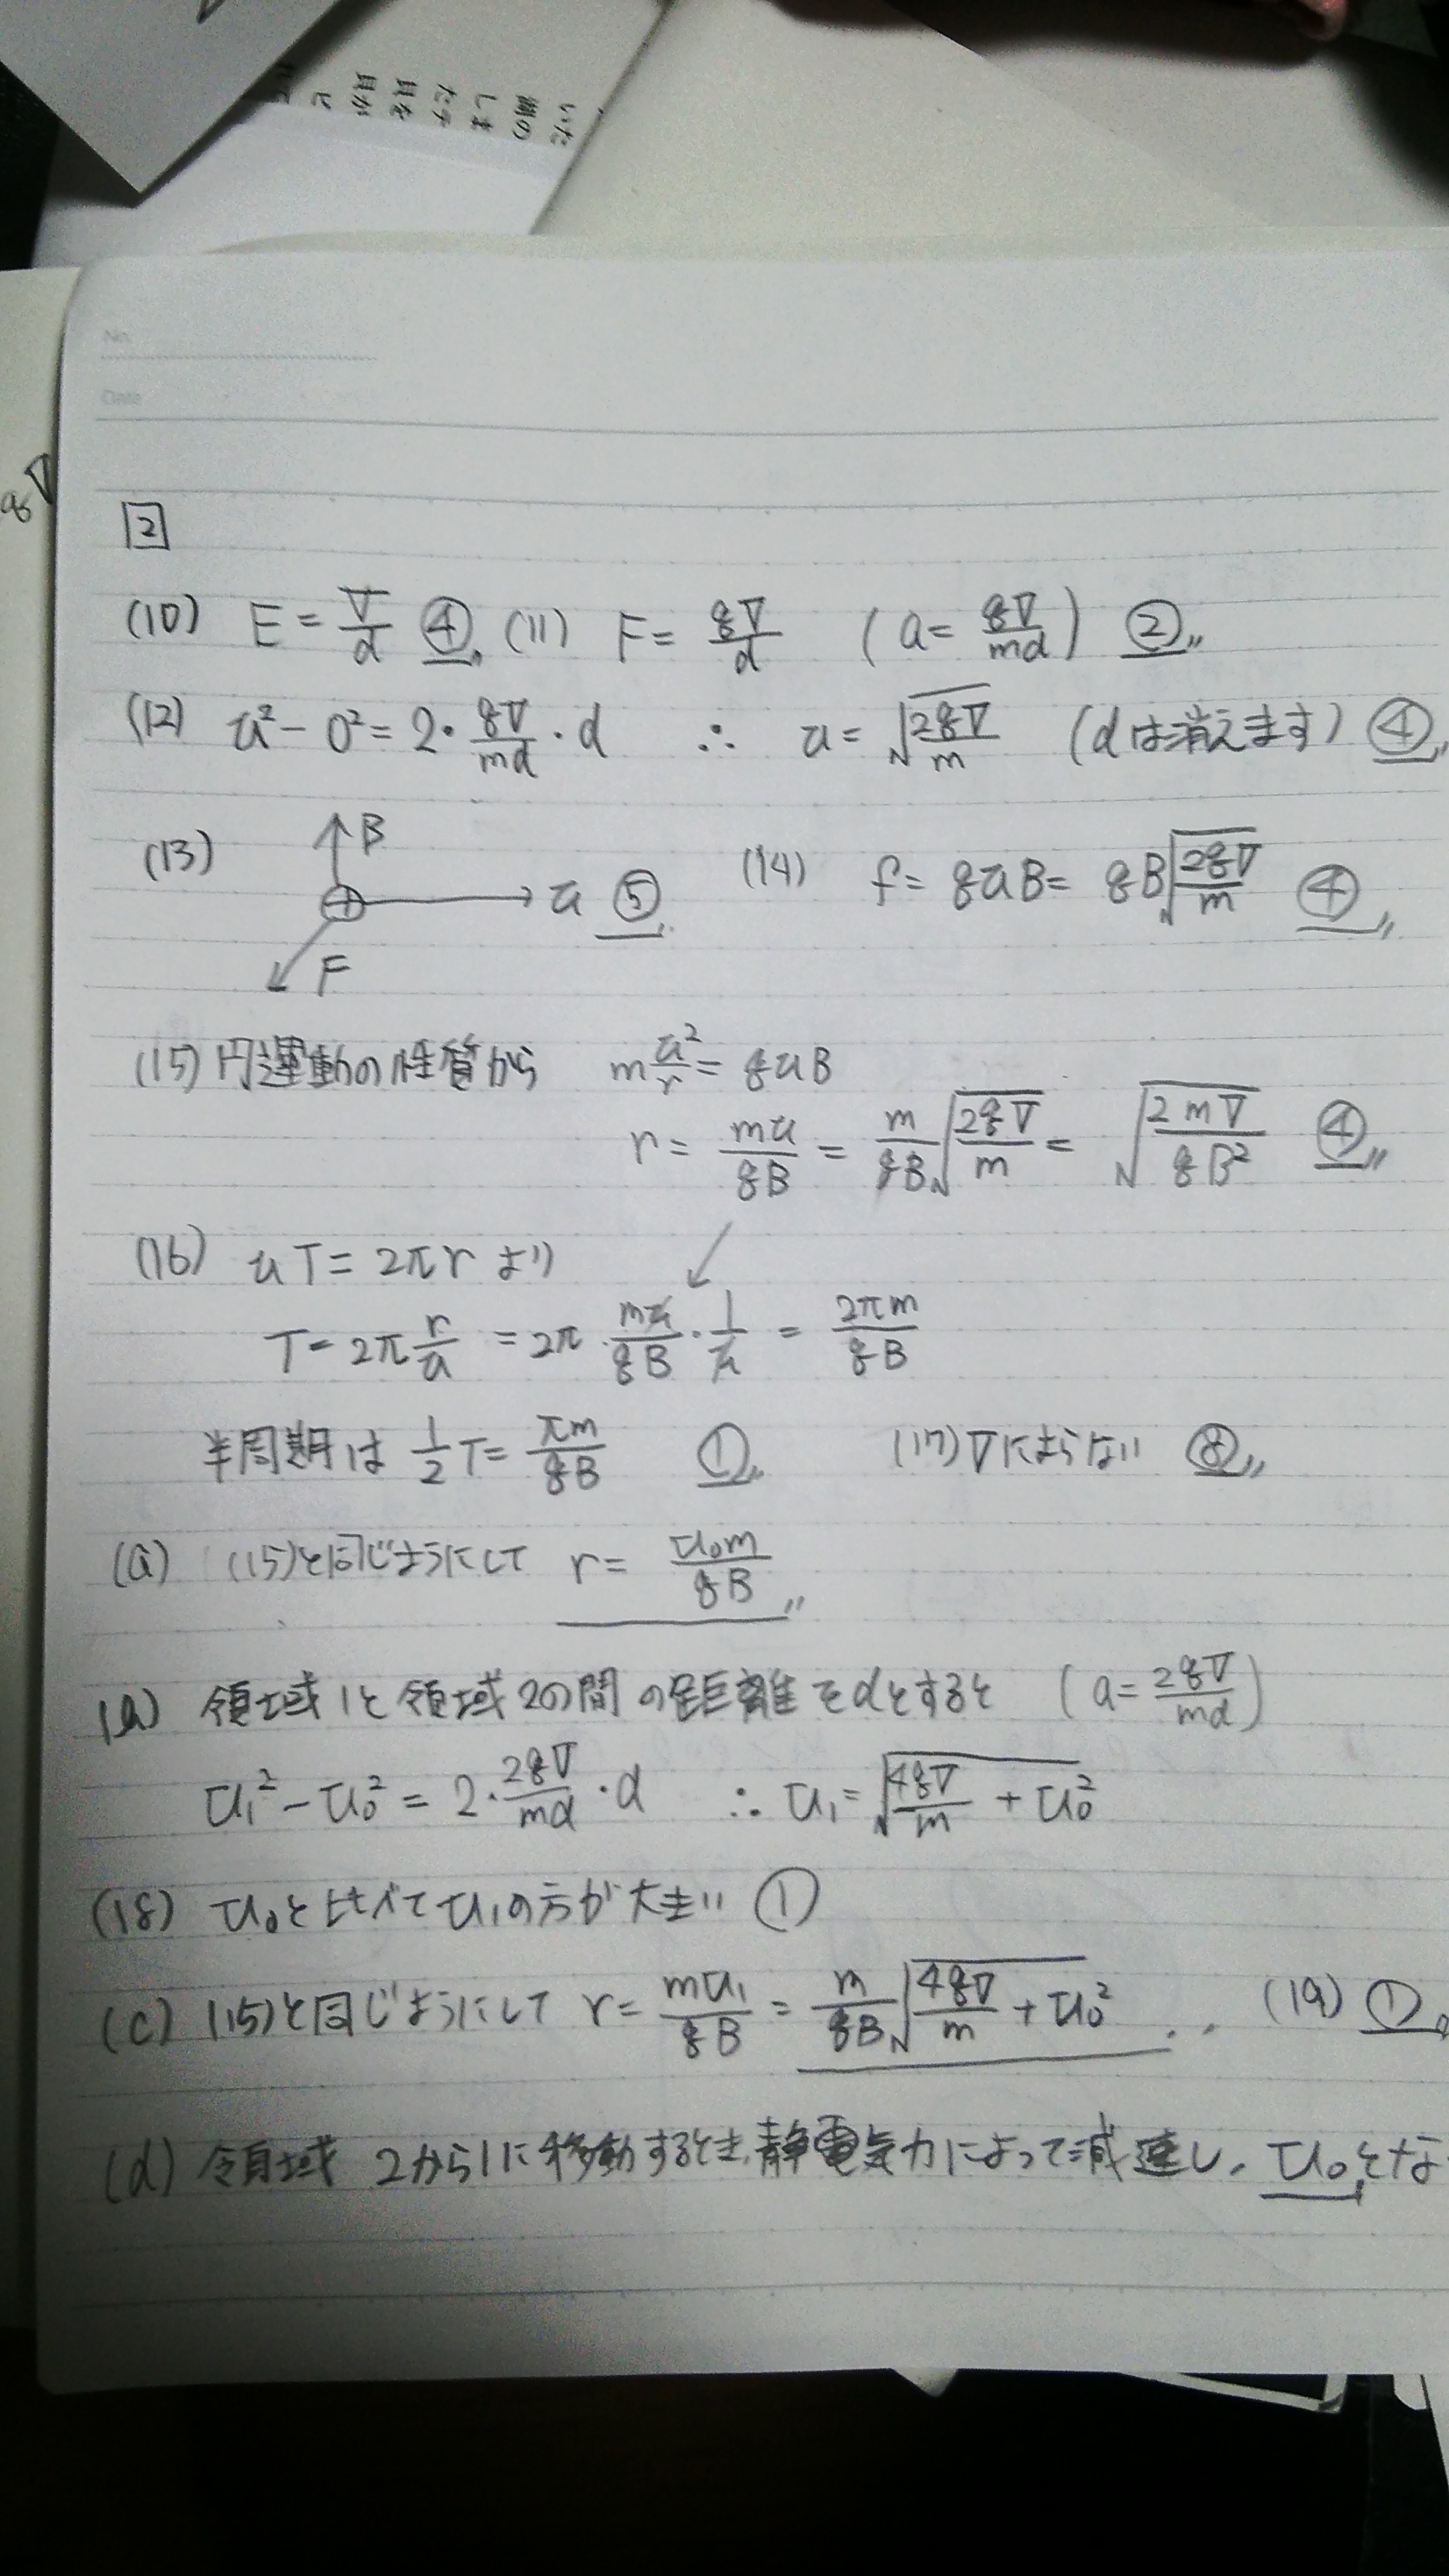 いた
間の
しま
だけ
No.
Date
qV
2
(10) E = V/d ④ (11) F = qV/d (a = qV/md) ②
(12) u² - 0² = 2・qV/md・d ∴ u = √(2qV/m) (dは消えます) ④
(13) B u F ⑤ (14) f = quB = qB√(2qV/m) ④
(15) 円運動の性質から m u²/r = quB
r = mu/qB = m/qB √(2qV/m) = √(2mV/qB²) ④
(16) uT = 2πr より
T = 2π r/u = 2π・mu/qB・1/u = 2πm/qB
半周期は 1/2 T = πm/qB ① (17) Vによらない ⑧
(a) (15)と同じようにして r = u₀m/qB
領域1と領域2の間の距離をdとすると (a = 2qV/md)
u₁² - u₀² = 2・2qV/md・d ∴ u₁ = √(4qV/m + u₀²)
(18) u₀と比べてu₁の方が大きい ①
(c) (15)と同じようにして r = mu₁/qB = m/qB √(4qV/m + u₀²) (19) ①
(d) 領域 2から1に移動するとき、静電気力によって減速し、u₀とな